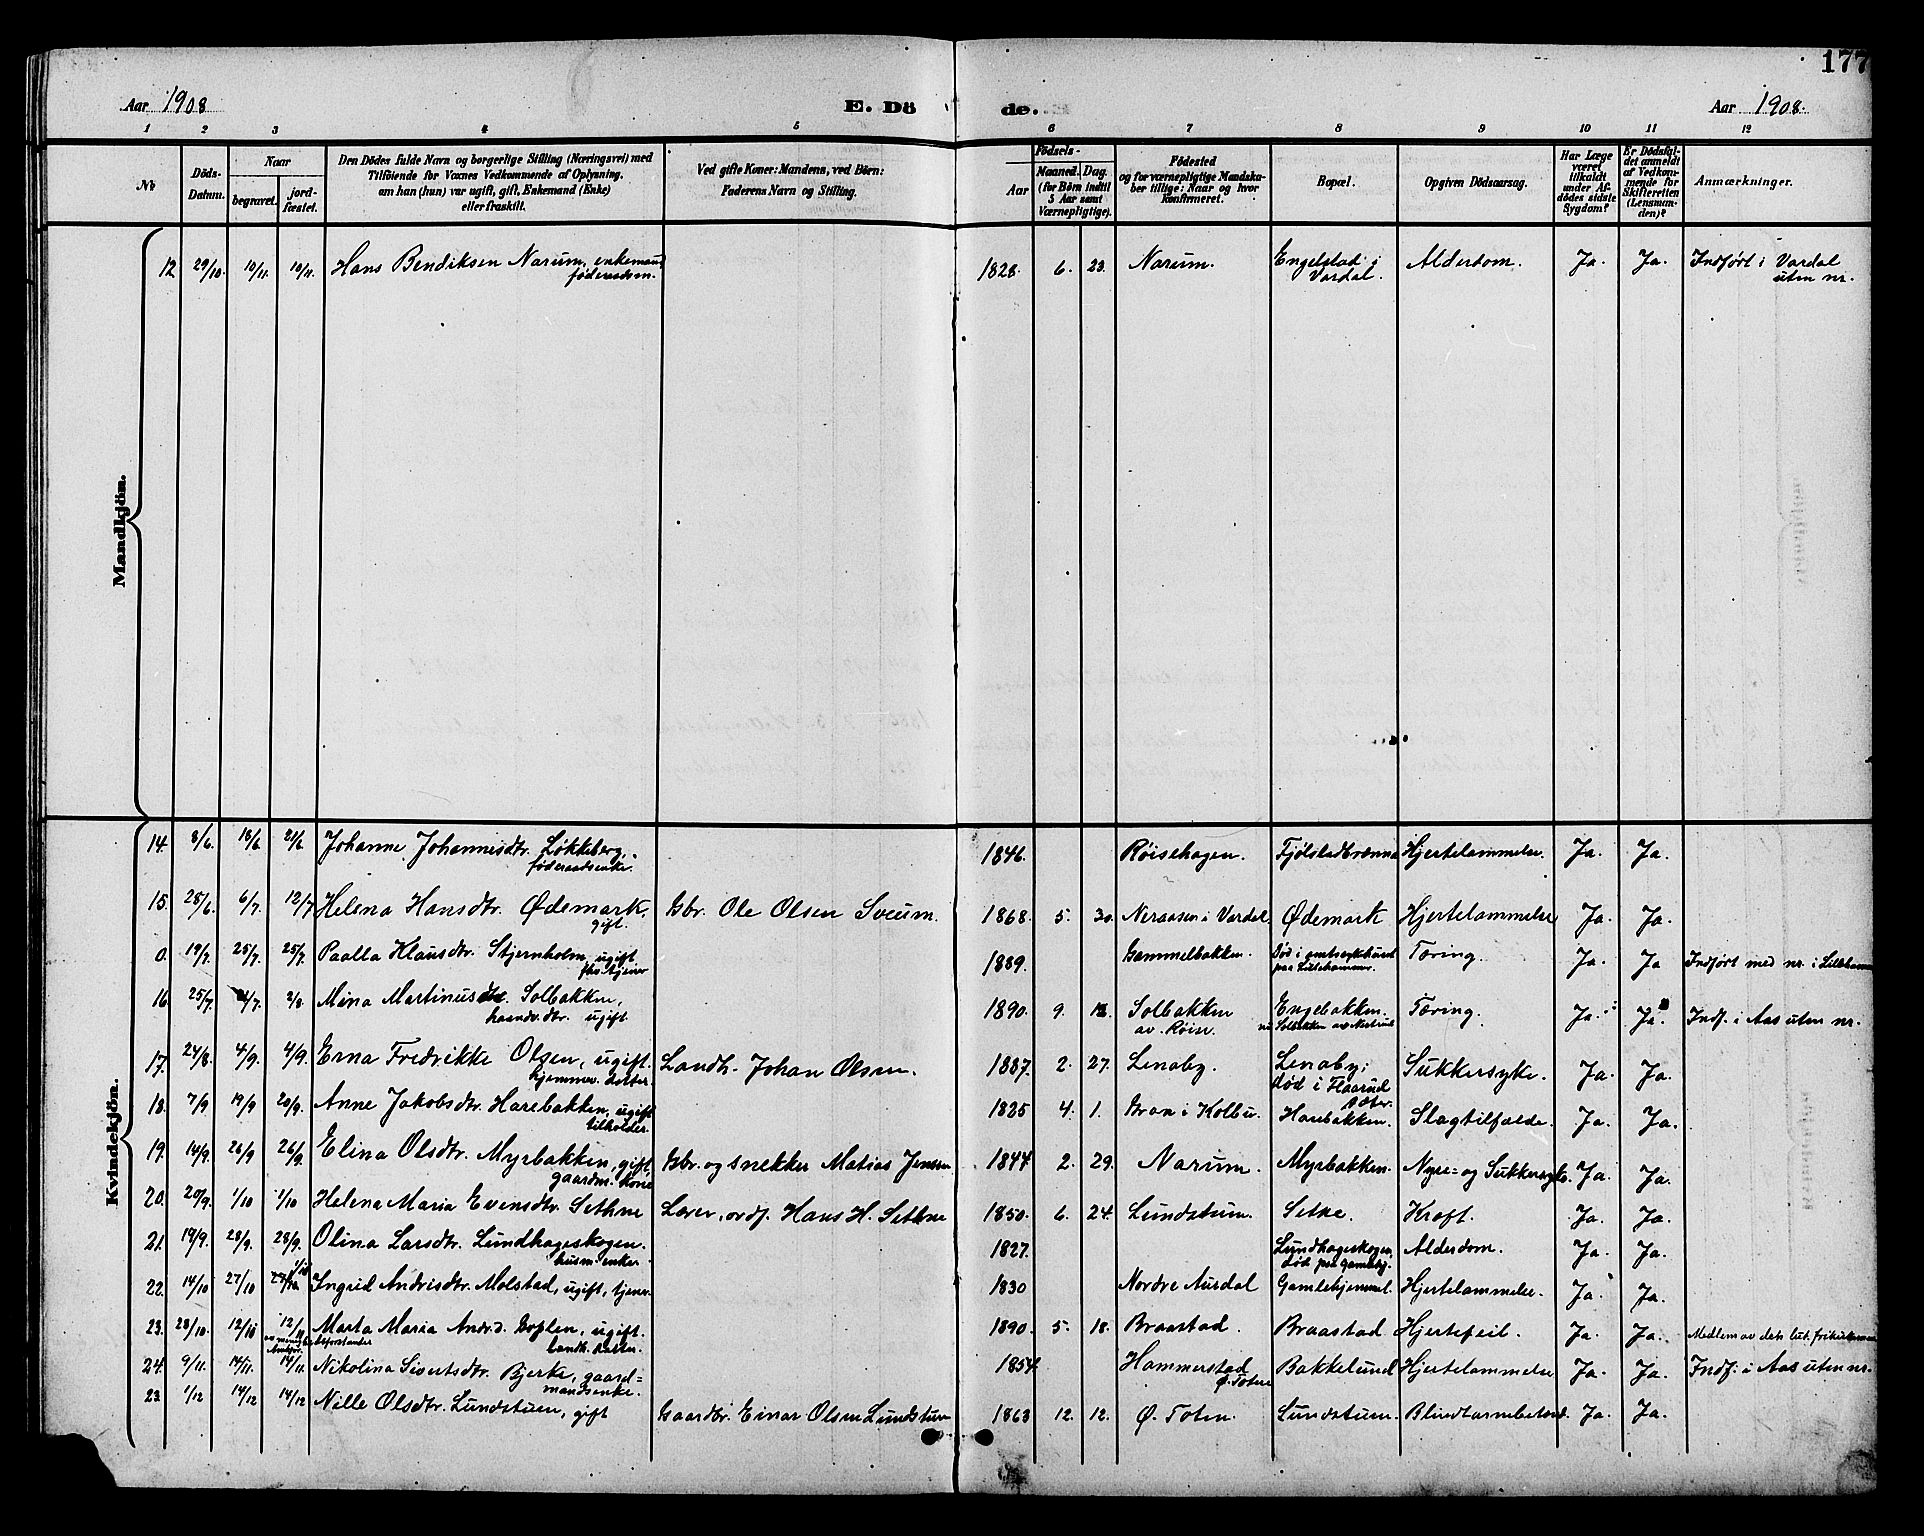 177
Aar 1908
E. Dö de.
Aar 1908.
1 2 3 4 5 6 7 8 9 10 11 12
No
Döds-Datum.
Naar
begravet.
jord-fæstet.
Den Dödes fulde Navn og borgerlige Stilling (Næringsvei) med
Tilföiende for Voxnes Vedkommende af Oplysning,
om han (hun) var ugift, gift, Enkemand (Enke)
eller fraskilt.
Ved gifte Koner: Mandens, ved Börn:
Faderens Navn og Stilling.
Födsels-
Aar
Maaned. Dag.
(for Börn indtil
5 Aar samt
Værnepligtige).
Födested
og for værnepligtige Mandska-
ber tillige: Naar og hvor
konfirmeret.
Bopæl.
Opgiven Dödsaarsag.
Har Læge
været
tilkaldt
under Af-
dödes sidste
Sygdom?
Er Dödsfal-
det anmeldt
af Vedkom-
mende for
Skifteretten
(Lensman-
den)?
Anmærkninger.
Mandkjön.
12 29/10. 10/11. 10/11. Hans Bendiksen Narum, enkemand føderaadsm. 1828. 6. 23. Narum. Engelstad i Vardal. Alderdom. Ja. Ja. Indført i Vardal uten nr.
Kvindekjön.
14. 8/6. 18/6 21/6 Johanne Johannesdtr. Løkkeberg, føderaadsenke. 1846. Røisehagen. Fjölstadbrænna Hjertelammelse. Ja. Ja.
15. 28/6. 6/7. 12/7 Helena Hansdtr. Ødemark, gift. Gbr. Ole Olsen Sveum. 1868. 5. 30. Neraasen i Vardal Ødemark Hjertelammelse Ja. Ja.
0. 19/7. 25/7. 25/7. Paalla Klausdtr. Stjernholm, ugift fhv. tjener 1889. Gammelbakken. Död i amtssykehuset paa Lillehammer. Tæring. Ja. Ja Indført med nr. i Lillehammer
16 25/7. 4/7. 2/8. Mina Martinusdtr. Solbakken, haandv. dtr. ugift. 1890. 9. 12. Solbakken av Røise. Engebakken. Tæring. Ja. Ja. Indf. i Aas uten nr.
17. 24/8. 4/9. 4/9. Erna Fredrikke Olsen, ugift. hjemmev. datter. Landh. Johan Olsen. 1887. 2. 27. Lenaby. Lenaby; död i Flaarud sæter. Sukkersyke. Ja. Ja.
18. 7/9 19/9 20/9. Anne Jakobsdtr. Harebakken, ugift tilholder. 1825 4. 1. Bran i Kolbu. Harebakken. Slagtilfælde. Ja. Ja.
19. 14/9. 26/9 26/9. Elina Olsdtr. Myrbakken, gift, gaardm. kone Gbr. og snekker Matias Jensen 1844 2. 29. Narum. Myrbakken. Nyre- og Sukkersyke. Ja. Ja.
20. 20/9. 1/10 1/10 Helena Maria Evensdtr. Sethne Lærer, ordf. Hans H. Sethne 1850. 6. 24. Lundstuen. Setne. Kræft. Ja. Ja.
21. 19/9. 28/9. 28/9. Olina Larsdtr. Lundhageskogen. husm. enke. 1827. Lundhageskogen, död paa gamlehj. Alderdom. Ja. Ja.
22. 14/10 27/10 Ingrid Andrisdtr. Molstad, ugift, tjener. 1830 Nordre Aurdal Gamlehjemmet. Hjertelammelse. Ja. Ja.
23. 28/10. 12/11 12/11 Marta Maria Andr.d. Goplen, ugift. landh. datter. 1890. 5. 18. Braastad. Braastad. Hjertefeil. Ja. Ja. Medlem av den lut. frikirke
24. 9/11. 14/11. 14/11. Nikolina Sivertsdtr. Bjerke, gaard=mandsenke. 1854. Hammerstad Ø. Toten Bakkelund Hjertelammelse Ja. Ja. Indf. i Aas uten nr.
23 1/12 14/12 14/12 Nille Olsdtr. Lundstuen, gift Gaardbr. Einar Olsen Lundstuen 1863 12. 12. Ø. Toten. Lundstuen. Blindtarmbetænd. Ja. Ja.